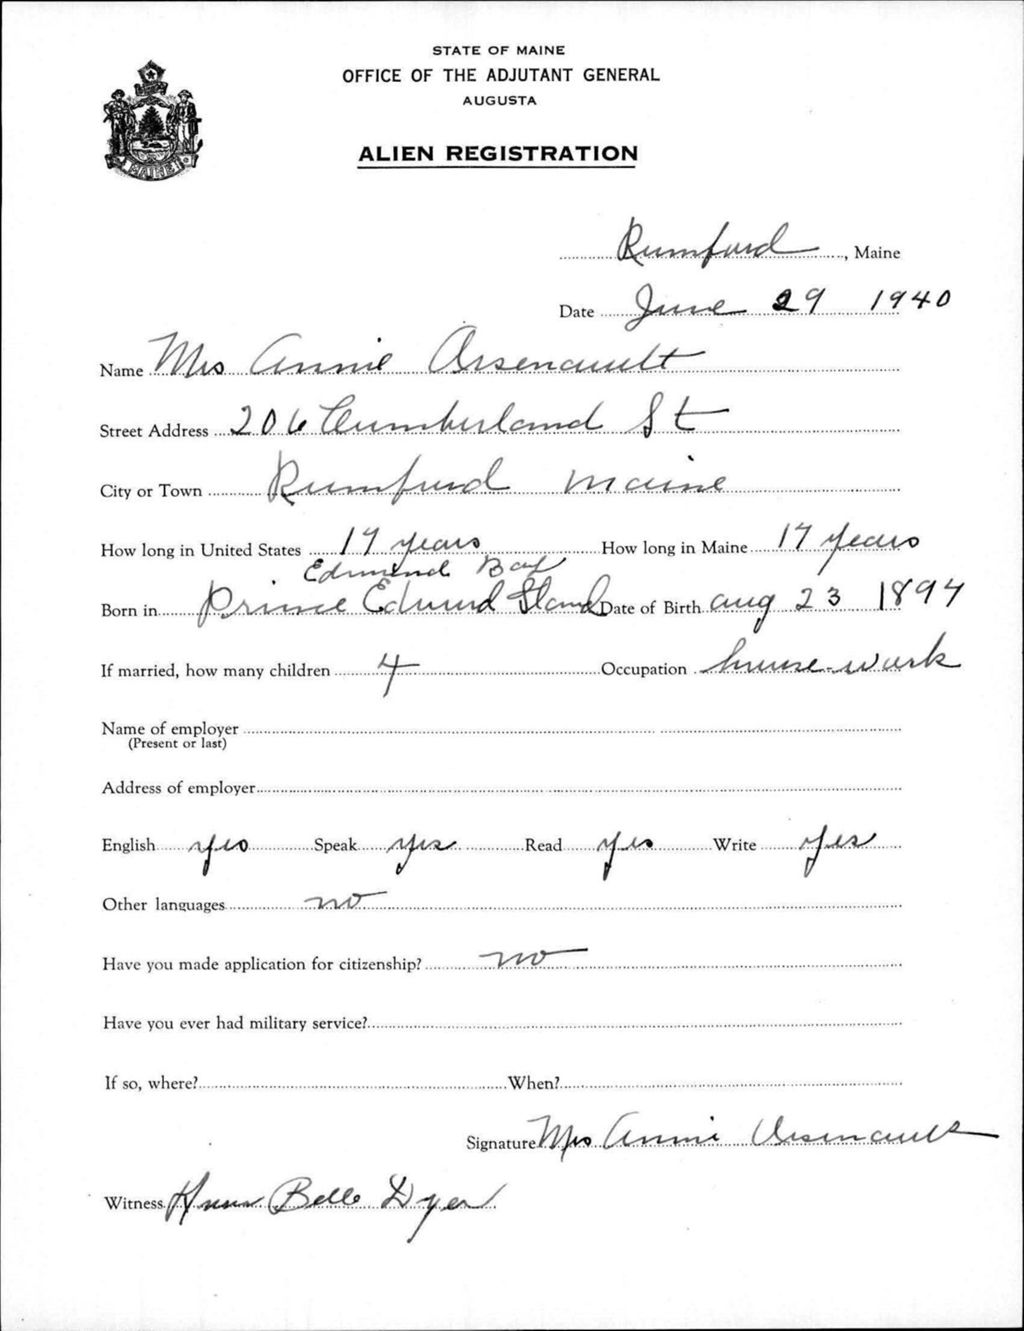 STATE OF MAINE
OFFICE OF THE ADJUTANT GENERAL
AUGUSTA
ALIEN REGISTRATION
MAINE
Rumford, Maine
Date June 29 1940
Name Mrs Annie Arsenault
Street Address 206 Cumberland St
City or Town Rumford Maine
How long in United States 17 years How long in Maine 17 years
Edmund Bay
Born in Prince Edward Island Date of Birth Aug 23 1894
If married, how many children 4 Occupation house-work
Name of employer
(Present or last)
Address of employer
English yes Speak yes Read yes Write yes
Other languages no
Have you made application for citizenship? no
Have you ever had military service?
If so, where? When?
Signature Mrs Annie Arsenault
Witness Belle Dyer